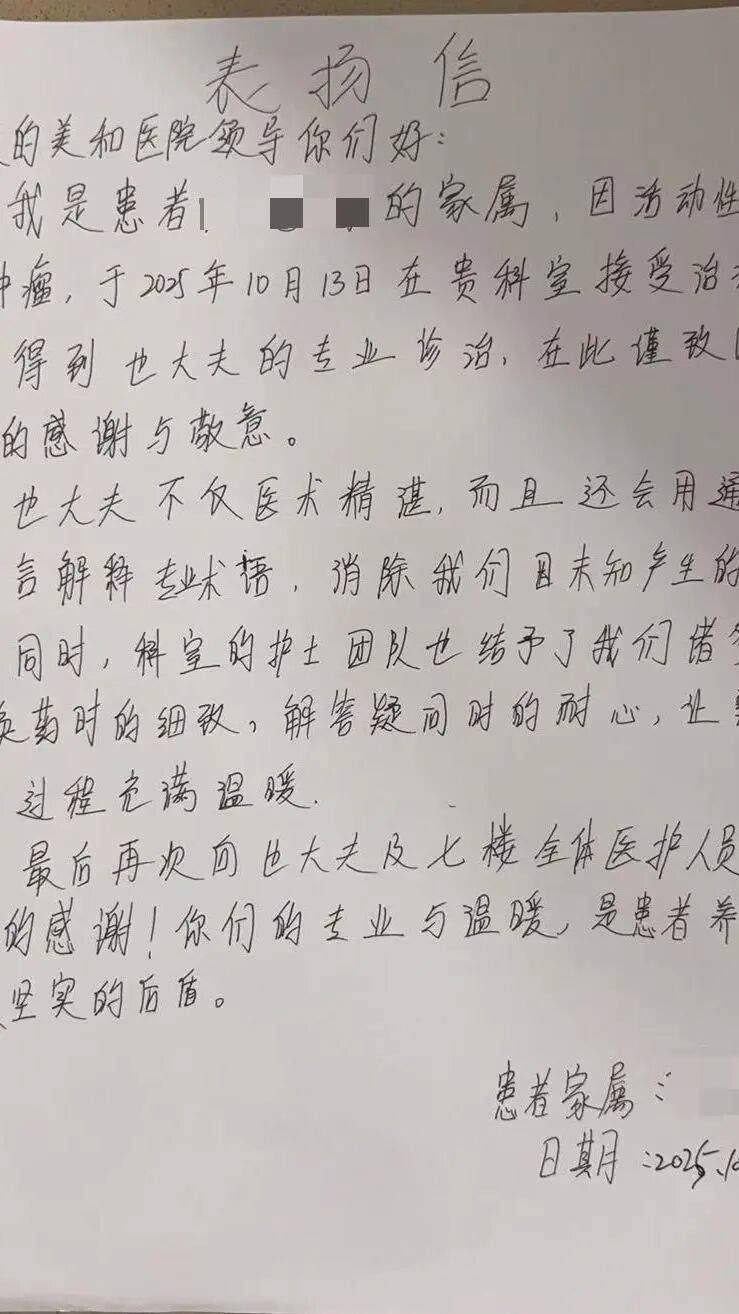 表扬信
的美和医院领导你们好:
我是患者 的家属、因活动性
肿瘤,于2025年10月13日在贵科室接受治
得到也大夫的专业诊治、在此谨致
的感谢与敬意。
也大夫不仅医术精湛,而且还会用通
言解释专业术语,消除我们因未知产生的
同时,科室的护士团队也结予了我们诸多
换药时的细致,解答疑问时的耐心,让
过程充满温暖.
最后再次向也大夫及七楼全体医护人员
的感谢!你们的专业与温暖,是患者养
坚实的后盾。
患者家属:
日期:2025.10